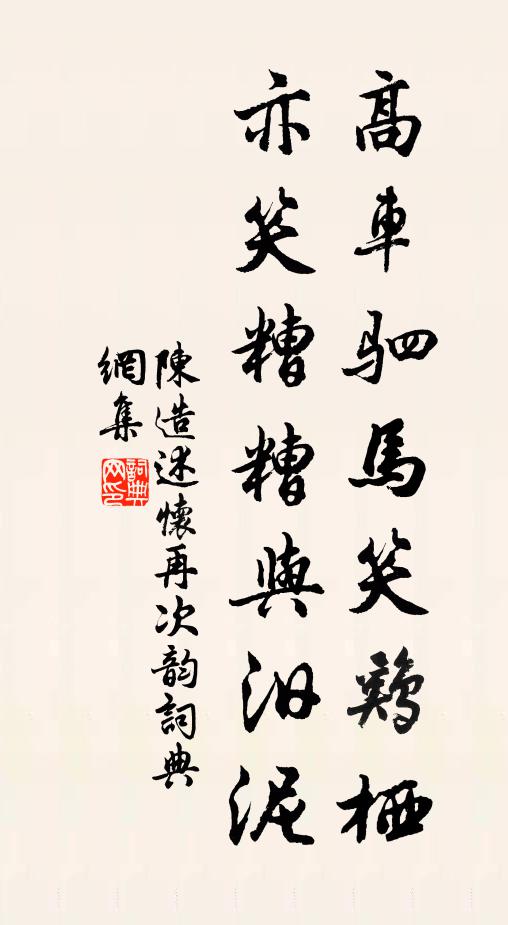 高車駟馬笑鷄栖
亦笑糟糟與汩泥
陳造述懷再次韵詞典
網集
詞典網印